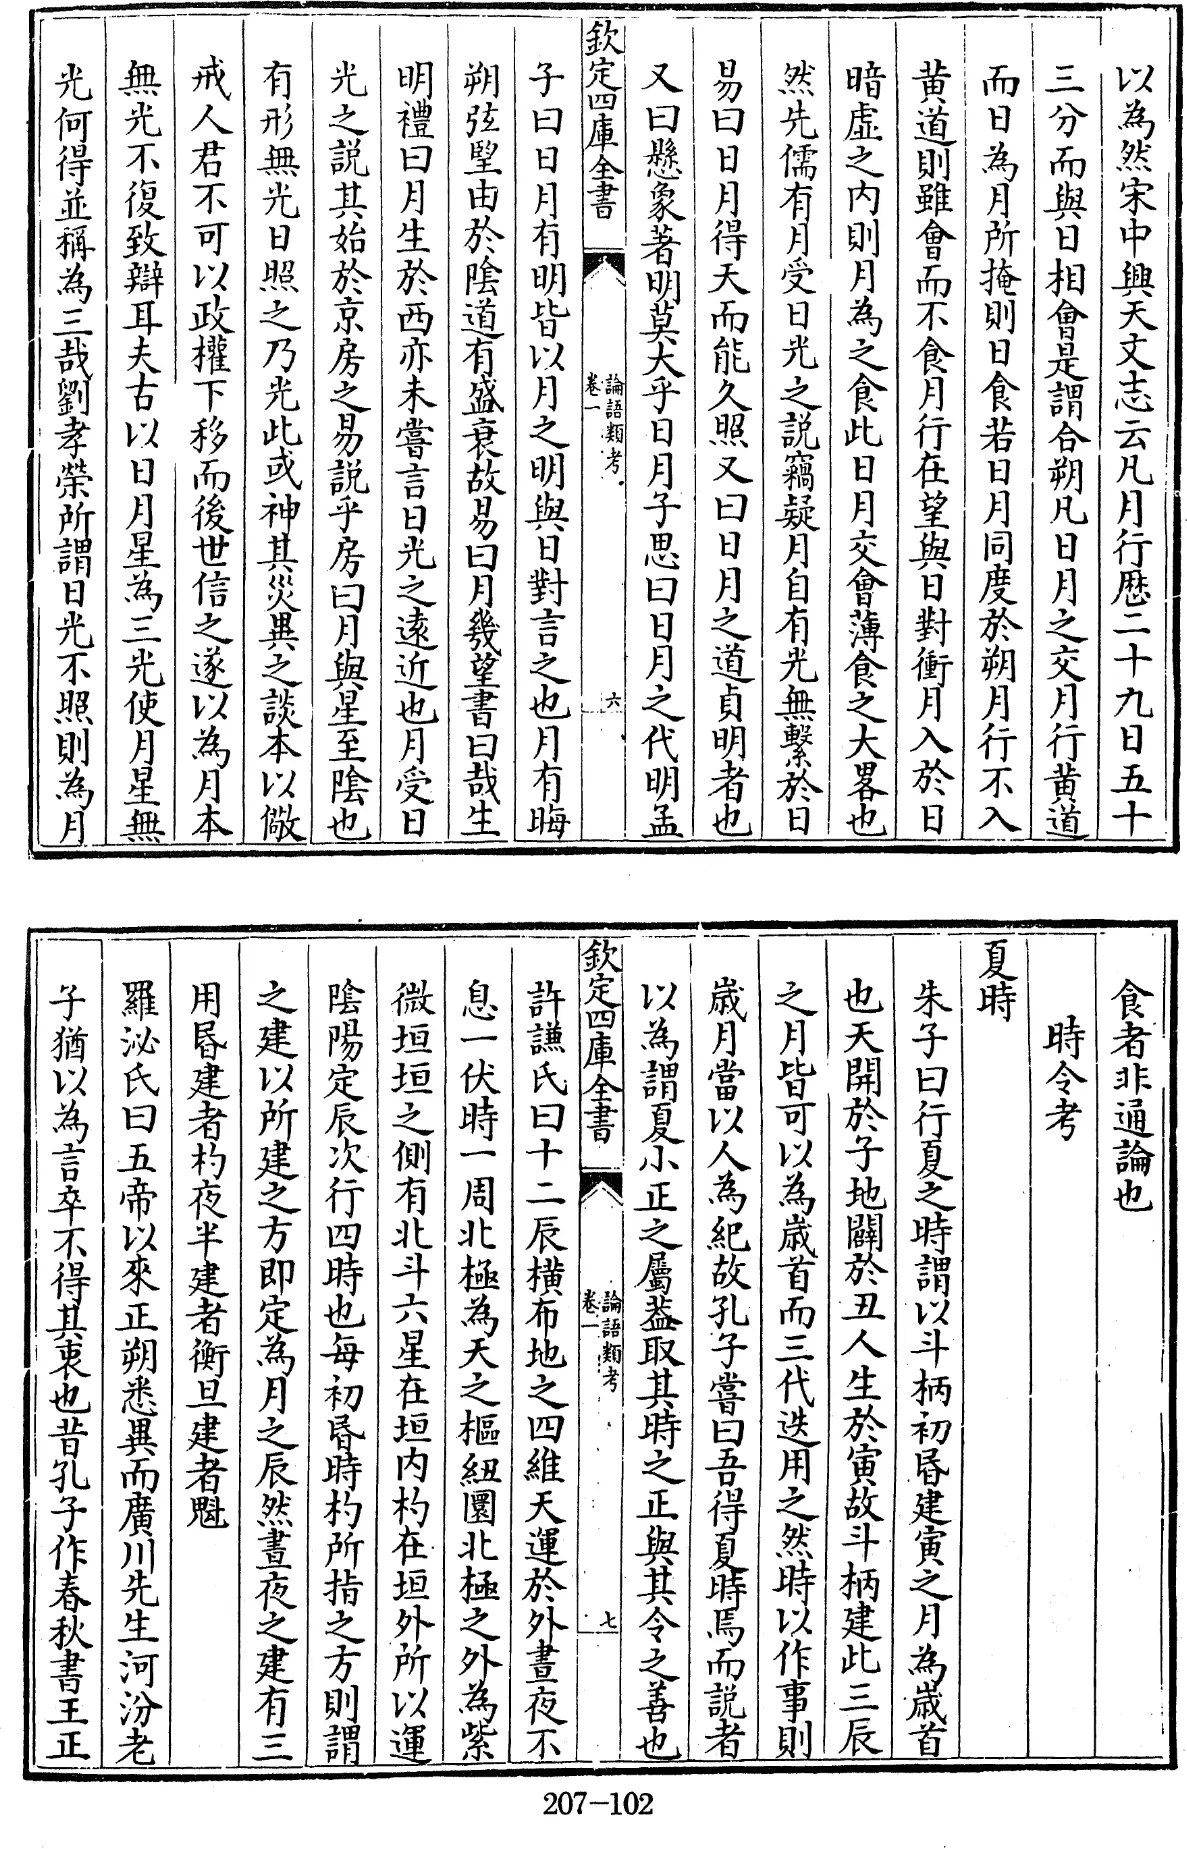 以為然宋中興天文志云凡月行歴二十九日五十
三分而與日相會是謂合朔凡日月之交月行黄道
而日為月所掩則日食若日月同度於朔月行不入
黄道則雖會而不食月行在望與日對衝月入於日
暗虛之内則月為之食此日月交會薄食之大畧也
然先儒有月受日光之説竊疑月自有光無繫於日
易曰日月得天而能久照又曰日月之道貞明者也
又曰懸象著明莫大乎日月子思曰日月之代明孟
欽定四庫全書
論語類考
卷一
六
子曰日月有明皆以月之明與日對言之也月有晦
朔弦朢由於陰道有盛衰故易曰月幾望書曰哉生
明禮曰月生於西亦未嘗言日光之遠近也月受日
光之説其始於京房之易説乎房曰月與星至陰也
有形無光日照之乃光此或神其災異之談本以儆
戒人君不可以政權下移而後世信之遂以為月本
無光不復致辯耳夫古以日月星為三光使月星無
光何得並稱為三哉劉孝榮所謂日光不照則為月
食者非通論也
時令考
夏時
朱子曰行夏之時謂以斗柄初昏建寅之月為歳首
也天開於子地闢於丑人生於寅故斗柄建此三辰
之月皆可以為歳首而三代迭用之然時以作事則
歳月當以人為紀故孔子嘗曰吾得夏時焉而説者
以為謂夏小正之屬葢取其時之正與其令之善也
欽定四庫全書
論語類考
卷一
七
許謙氏曰十二辰横布地之四維天運於外晝夜不
息一伏時一周北極為天之樞紐圜北極之外為紫
微垣垣之側有北斗六星在垣内杓在垣外所以運
陰陽定辰次行四時也每初昏時杓所指之方則謂
之建以所建之方即定為月之辰然晝夜之建有三
用昏建者杓夜半建者衡旦建者魁
羅泌氏曰五帝以來正朔悉異而廣川先生河汾老
子猶以為言卒不得其衷也昔孔子作春秋書王正
207-102